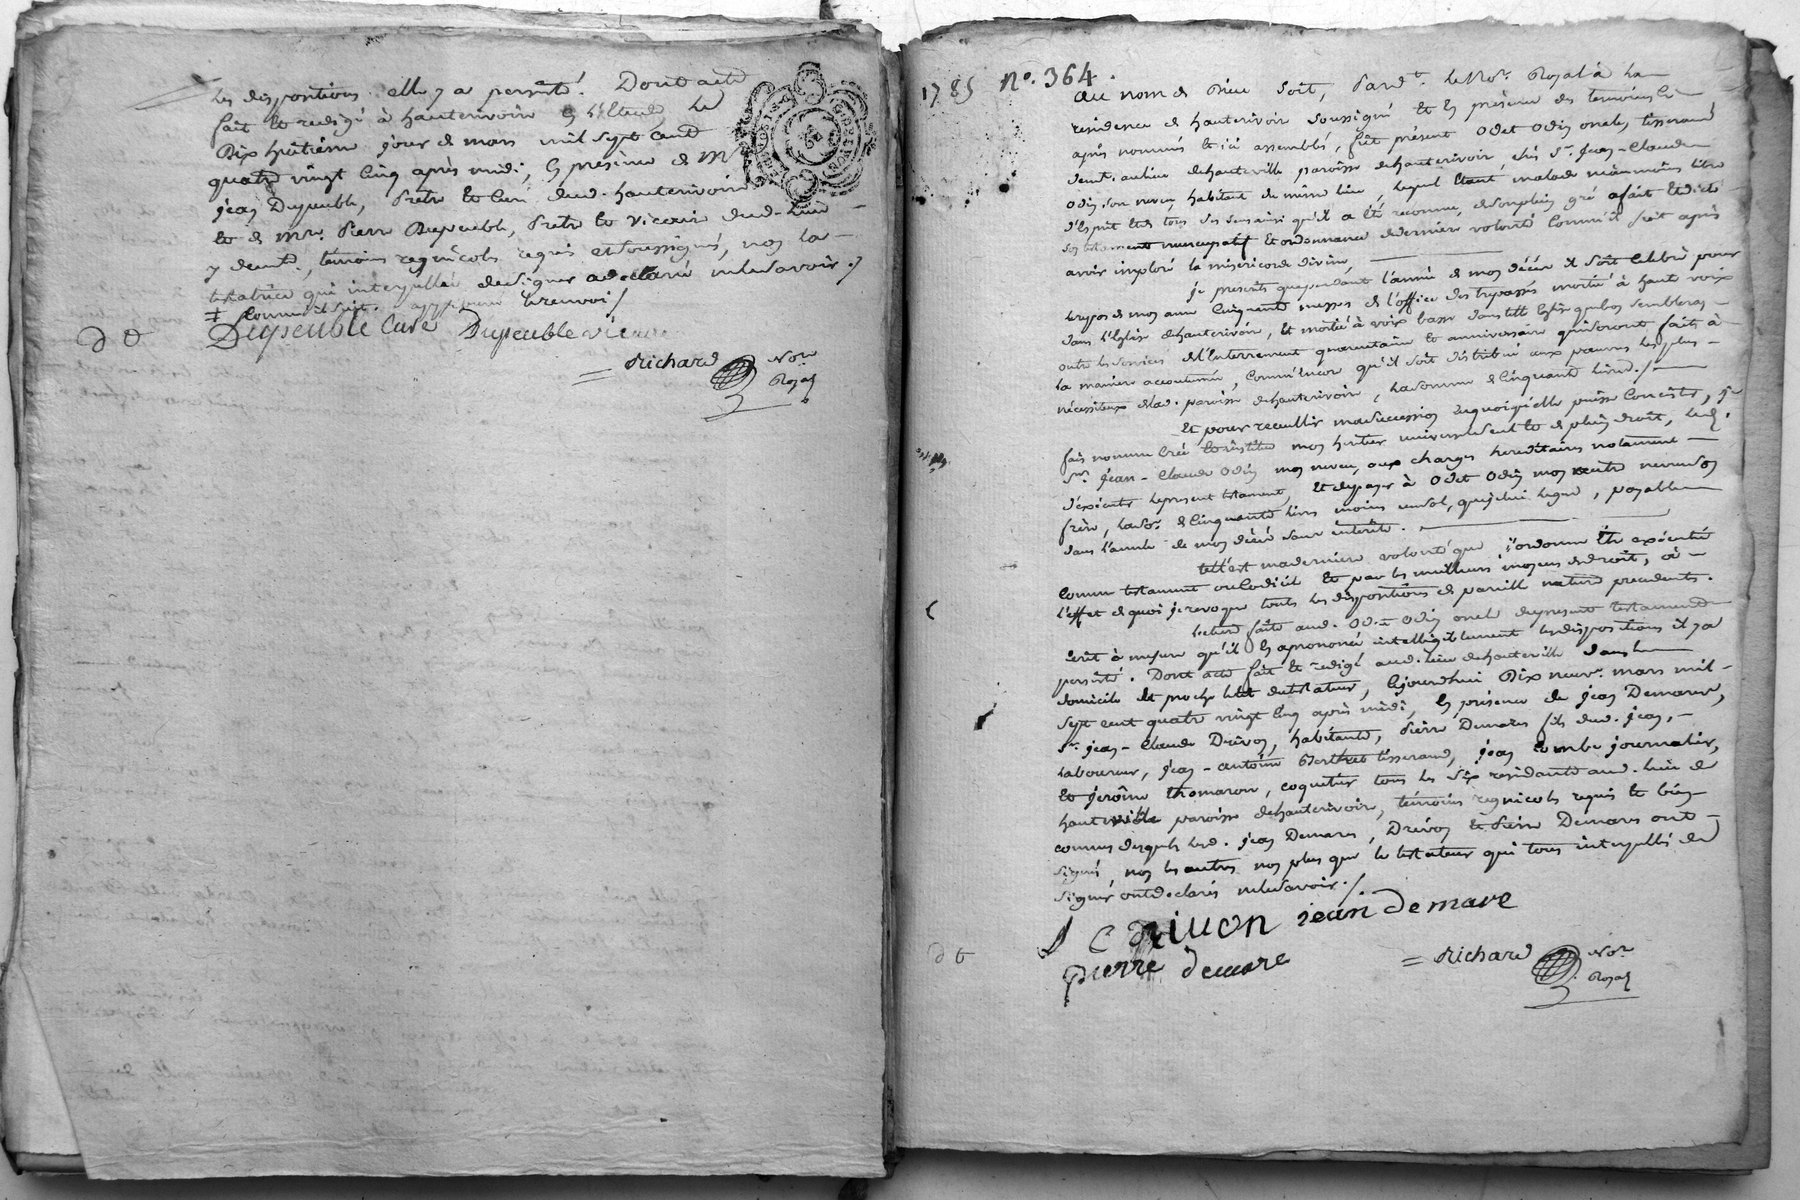 les dispositions elle y a persisté. Dont acte
fait et redigé à hauterivoire en l'étude le
Dix huitiéme jour de mars mil sept cent
quatre vingt cinq après midi, en presence de Mre
jean Dupeuble, Pretre et Curé dud. hauterivoire
et de Mre. Pierre Dupeuble, Pretre et vicaire dud. lieu
y demt., témoins regnicols requis et soussignés, non la
testatrice qui interpellée de signer a declaré ne le savoir ./
Dupeuble Curé Dupeuble vicaire
d t
= Richard Nore
Royal
1785 No. 364.
au nom de Dieu soit, Pardt. le Nore. Royal à la
residence de hauterivoire soussigné et en présence des temoins cy
après nommés et ici assemblés, fut présent Odet Odin oncle tisserand
demt. au lieu de hauteville paroisse de hauterivoire, chés Sr. Jean-Claude
Odin son neveu, habitant du même lieu, lequel étant malade néanmoins libre
d'esprit et de tous ses sens ainsi qu'il a été reconnu, de son plein gré a fait et dicté
son testament nuncupatif et ordonnance de derniere volonté comme il suit après
avoir imploré la misericorde divine,
je prescrits que pendant l'année de mon décès il soit celebré pour
le repos de mon ame cinquante messes de l'office des trepassés moitié à haute voix
dans l'Eglise de hauterivoire, et moitié à voix basse dans telle Eglise que bon semblera,
outre les services de l'enterrement quarantaine et anniversaire qui seront faits à
la maniere accoutumée, comm'encor qu'il soit distribué aux pauvres les plus
nécessiteux de lad. paroisse de hauterivoire, la somme de cinquante livres./
Et pour recuillir ma succession en quoi qu'elle puisse consister, je
fais nomme crée et institue mon heritier universel seul et de plein droit, led.
Sr. Jean-Claude Odin mon neveu, aux charges hereditaires notament
d'exécuter le present testament, et de payer à Odet Odin mon autre neveu son
frère, la so. de cinquante livres moins un sol, que je lui legue, payable
dans l'année de mon décès sans intérêts.
tell'est ma derniere volonté que j'ordonne être exécutée
comme testament ou codicil et par les meilleurs moyens de droit, à
l'effet de quoi je revoque toutes les dispositions de pareille nature precedents.
Lecture faite aud. Odet Odin oncle du present testament
écrit à mesure qu'il en a prononcé intelligiblement les dispositions il y a
persisté. Dont acte fait et redigé aud. lieu de hauteville dans le
domicile et proche le lit du testateur, cejourdhui Dix neuve. mars mil
sept cent quatre vingt cinq après midi, en présence de jean Demarre,
Sr. jean-Claude Drivon, habitants, Pierre Demares fils dud. jean,
laboureur, jean-antoine Berthet tisserand, jean combe journalier,
et jerôme thomaron, coquetier tous les six residants aud. lieu de
hauteville paroisse de hauterivoire, témoins regnicols requis et bien
connus desquels led. jean Demares, Drivon et Pierre Demares ont
signé, non les autres non plus que le testateur qui tous interpellés de
signer ont declarés ne le savoir ./.
J C Drivon jean Demare
pierre demare
d t
= Richard Nore
Royal